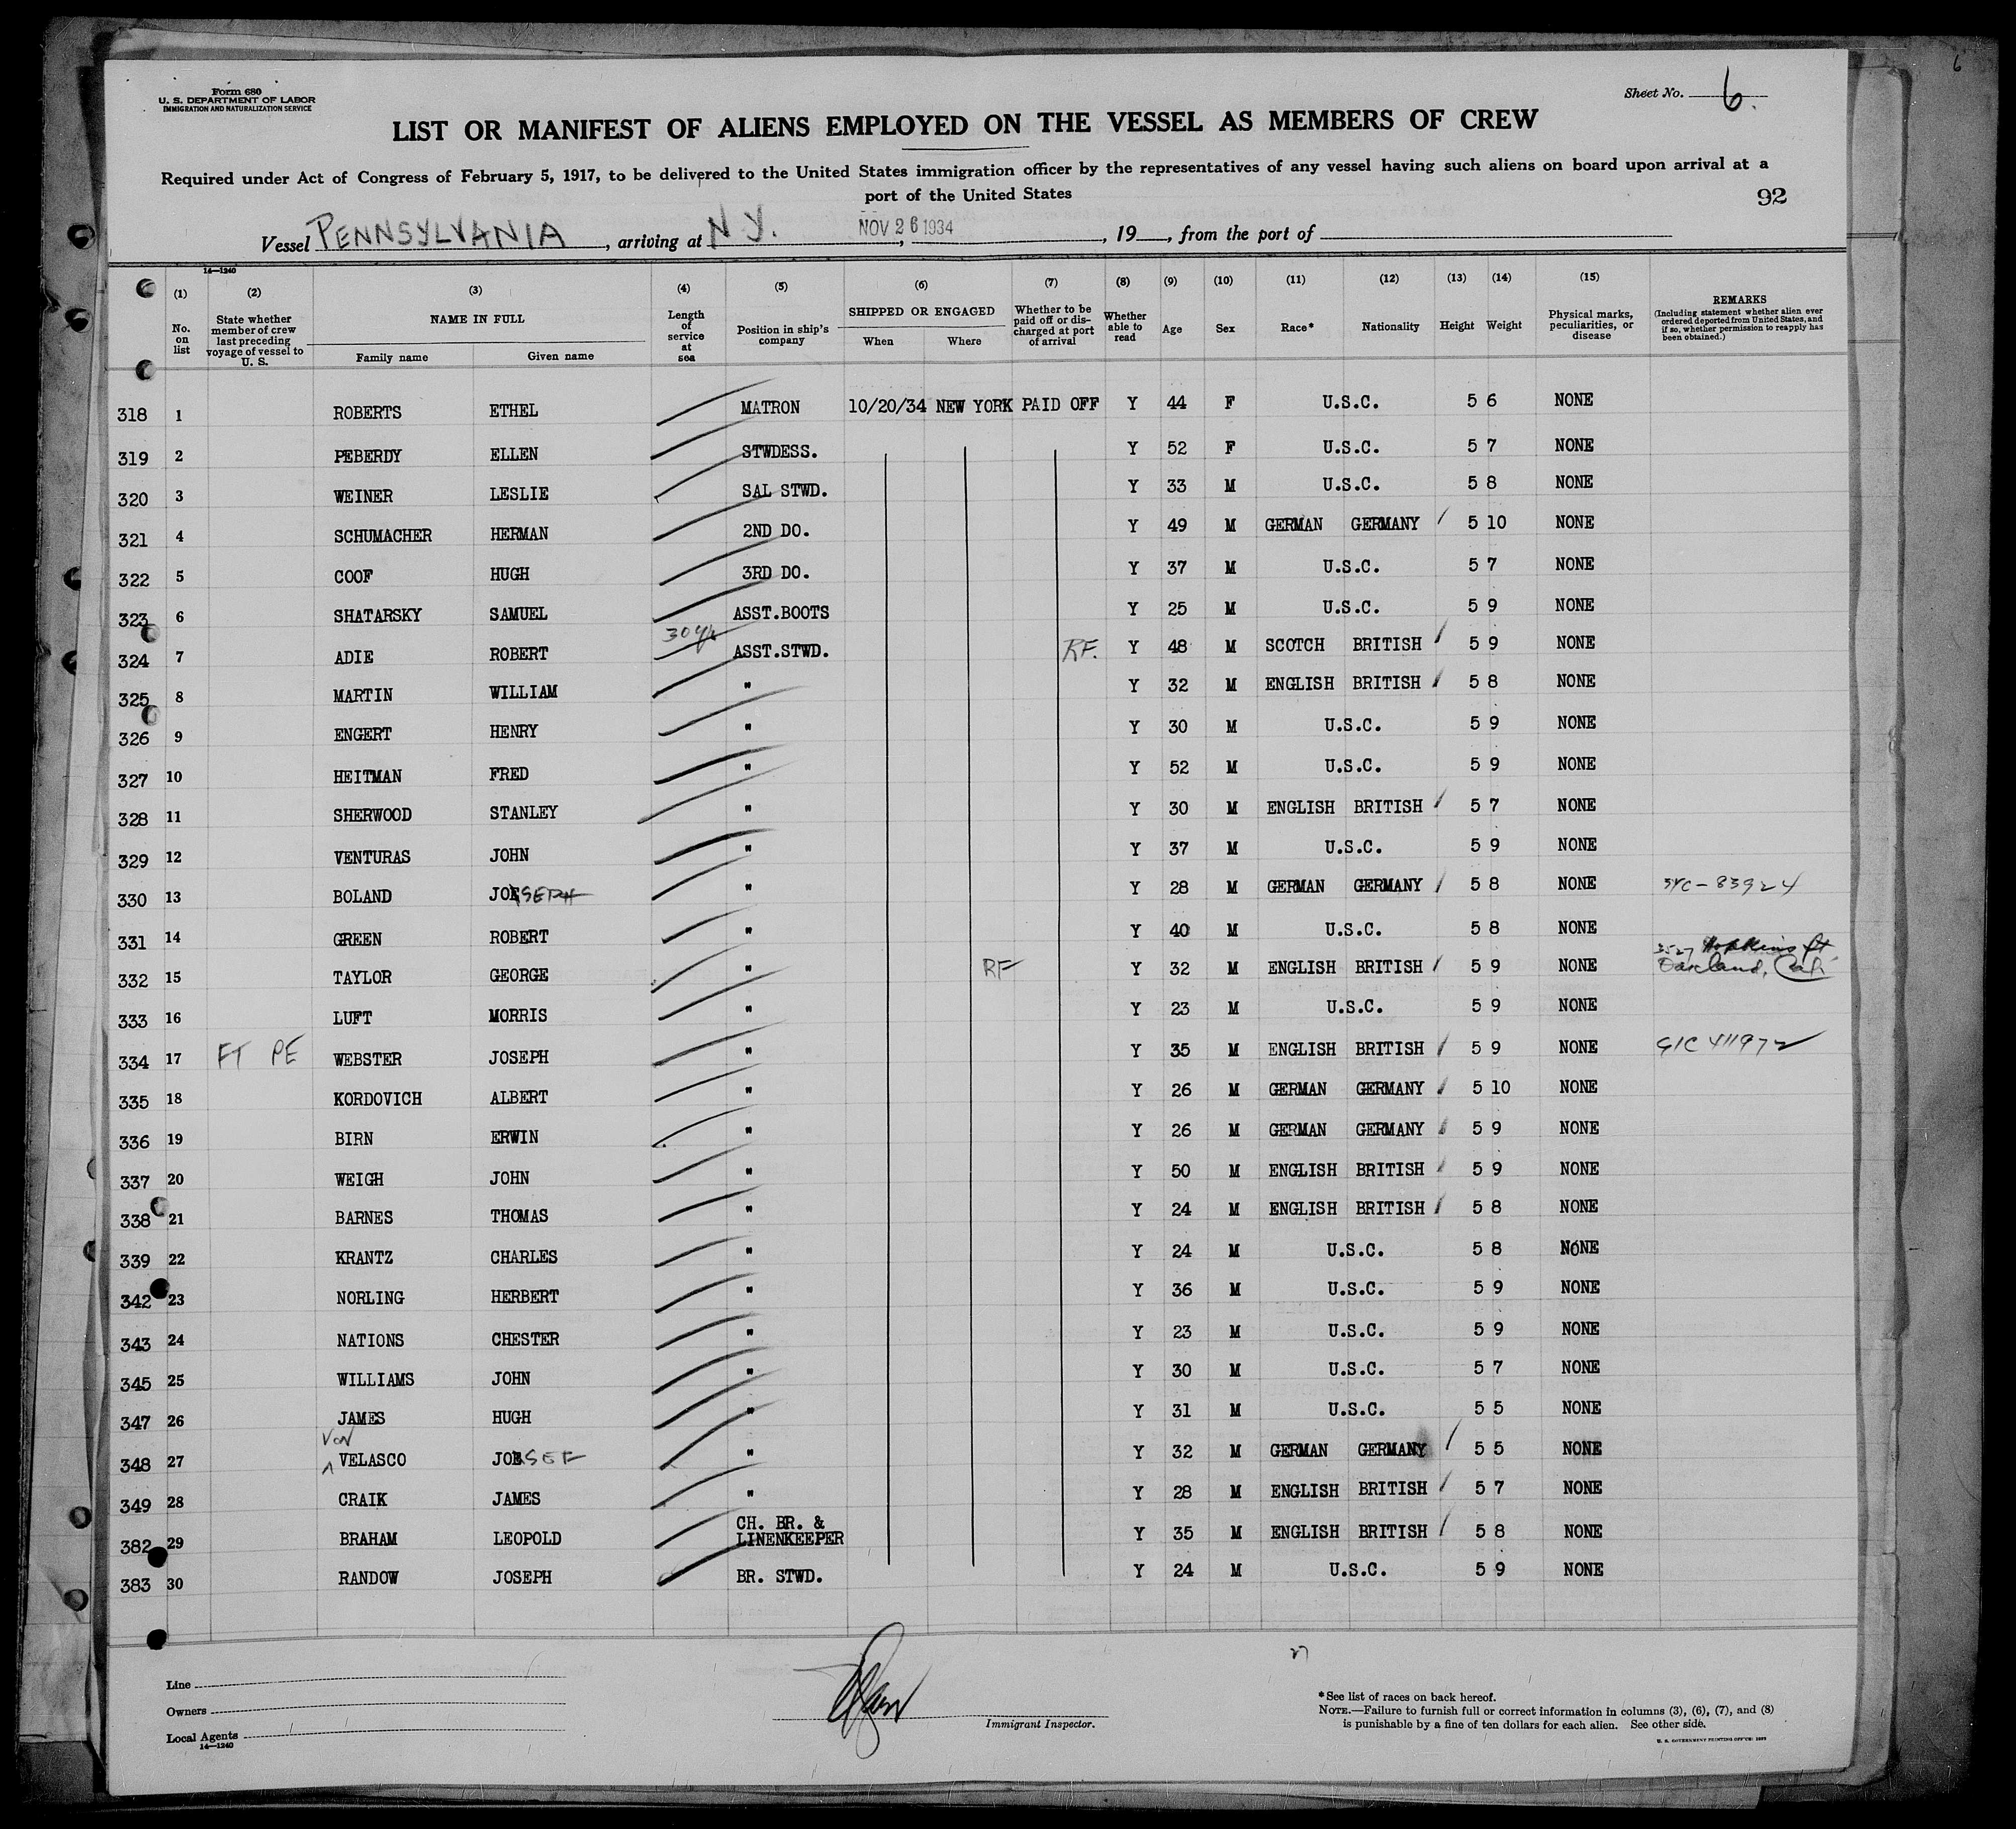 6
Form 680
U. S. DEPARTMENT OF LABOR
IMMIGRATION AND NATURALIZATION SERVICE
Sheet No. 6.
LIST OR MANIFEST OF ALIENS EMPLOYED ON THE VESSEL AS MEMBERS OF CREW
Required under Act of Congress of February 5, 1917, to be delivered to the United States immigration officer by the representatives of any vessel having such aliens on board upon arrival at a
port of the United States
92
Vessel PENNSYLVANIA, arriving at N.Y. NOV 26 1934, 19__, from the port of
14—1240
(1) (2) (3) (4) (5) (6) (7) (8) (9) (10) (11) (12) (13) (14) (15)
No. on list
State whether member of crew last preceding voyage of vessel to U. S.
NAME IN FULL
Family name Given name
Length of service at sea
Position in ship's company
SHIPPED OR ENGAGED
When Where
Whether to be paid off or discharged at port of arrival
Whether able to read
Age
Sex
Race*
Nationality
Height
Weight
Physical marks, peculiarities, or disease
REMARKS
(Including statement whether alien ever ordered deported from United States, and if so, whether permission to reapply has been obtained.)
318 1 ROBERTS ETHEL MATRON 10/20/34 NEW YORK PAID OFF Y 44 F U.S.C. 5 6 NONE
319 2 PEBERDY ELLEN STWDESS. Y 52 F U.S.C. 5 7 NONE
320 3 WEINER LESLIE SAL STWD. Y 33 M U.S.C. 5 8 NONE
321 4 SCHUMACHER HERMAN 2ND DO. Y 49 M GERMAN GERMANY 5 10 NONE
322 5 COOF HUGH 3RD DO. Y 37 M U.S.C. 5 7 NONE
323 6 SHATARSKY SAMUEL ASST.BOOTS Y 25 M U.S.C. 5 9 NONE
324 7 ADIE ROBERT 30 ASST.STWD. RF. Y 48 M SCOTCH BRITISH 5 9 NONE
325 8 MARTIN WILLIAM " Y 32 M ENGLISH BRITISH 5 8 NONE
326 9 ENGERT HENRY " Y 30 M U.S.C. 5 9 NONE
327 10 HEITMAN FRED " Y 52 M U.S.C. 5 9 NONE
328 11 SHERWOOD STANLEY " Y 30 M ENGLISH BRITISH 5 7 NONE
329 12 VENTURAS JOHN " Y 37 M U.S.C. 5 9 NONE
330 13 BOLAND JOSEPH " Y 28 M GERMAN GERMANY 5 8 NONE
331 14 GREEN ROBERT " Y 40 M U.S.C. 5 8 NONE
332 15 TAYLOR GEORGE " RF Y 32 M ENGLISH BRITISH 5 9 NONE 3527 Hopkins St
Oakland, Cali
333 16 LUFT MORRIS " Y 23 M U.S.C. 5 9 NONE
334 17 FT PE WEBSTER JOSEPH " Y 35 M ENGLISH BRITISH 5 9 NONE
335 18 KORDOVICH ALBERT " Y 26 M GERMAN GERMANY 5 10 NONE
336 19 BIRN ERWIN " Y 26 M GERMAN GERMANY 5 9 NONE
337 20 WEIGH JOHN " Y 50 M ENGLISH BRITISH 5 9 NONE
338 21 BARNES THOMAS " Y 24 M ENGLISH BRITISH 5 8 NONE
339 22 KRANTZ CHARLES " Y 24 M U.S.C. 5 8 NONE
342 23 NORLING HERBERT " Y 36 M U.S.C. 5 9 NONE
343 24 NATIONS CHESTER " Y 23 M U.S.C. 5 9 NONE
345 25 WILLIAMS JOHN " Y 30 M U.S.C. 5 7 NONE
347 26 JAMES HUGH " Y 31 M U.S.C. 5 5 NONE
348 27 VON VELASCO JOSEF " Y 32 M GERMAN GERMANY 5 5 NONE
349 28 CRAIK JAMES " Y 28 M ENGLISH BRITISH 5 7 NONE
382 29 BRAHAM LEOPOLD CH. BR. & LINENKEEPER Y 35 M ENGLISH BRITISH 5 8 NONE
383 30 RANDOW JOSEPH BR. STWD. Y 24 M U.S.C. 5 9 NONE
Line
Owners
Local Agents
14—1240
Immigrant Inspector.
*See list of races on back hereof.
NOTE.—Failure to furnish full or correct information in columns (3), (6), (7), and (8)
is punishable by a fine of ten dollars for each alien. See other side.
U. S. GOVERNMENT PRINTING OFFICE: